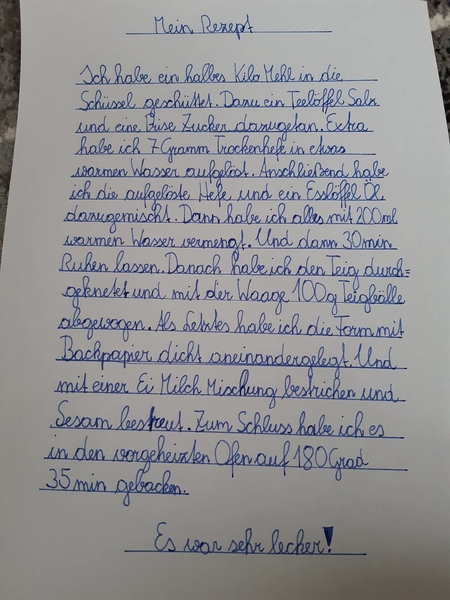 Mein Rezept
Ich habe ein halbes Kilo Mehl in die
Schüssel geschüttet. Dazu ein Teelöffel Salz
und eine Prise Zucker dazugetan. Extra
habe ich 7 Gramm Trockenhefe in etwas
warmen Wasser aufgelöst. Anschließend habe
ich die aufgelöste Hefe und ein Esslöffel Öl
dazugemischt. Dann habe ich alles mit 200ml
warmen Wasser vermengt. Und dann 30min
Ruhen lassen. Danach habe ich den Teig durch=
geknetet und mit der Waage 100g Teigbälle
abgewogen. Als Letztes habe ich die Form mit
Backpapier dicht aneinandergelegt. Und
mit einer Ei Milch Mischung bestrichen und
Sesam beestreut. Zum Schluss habe ich es
in den vorgeheizten Ofen auf 180 Grad
35 min gebacken.
Es war sehr lecker!